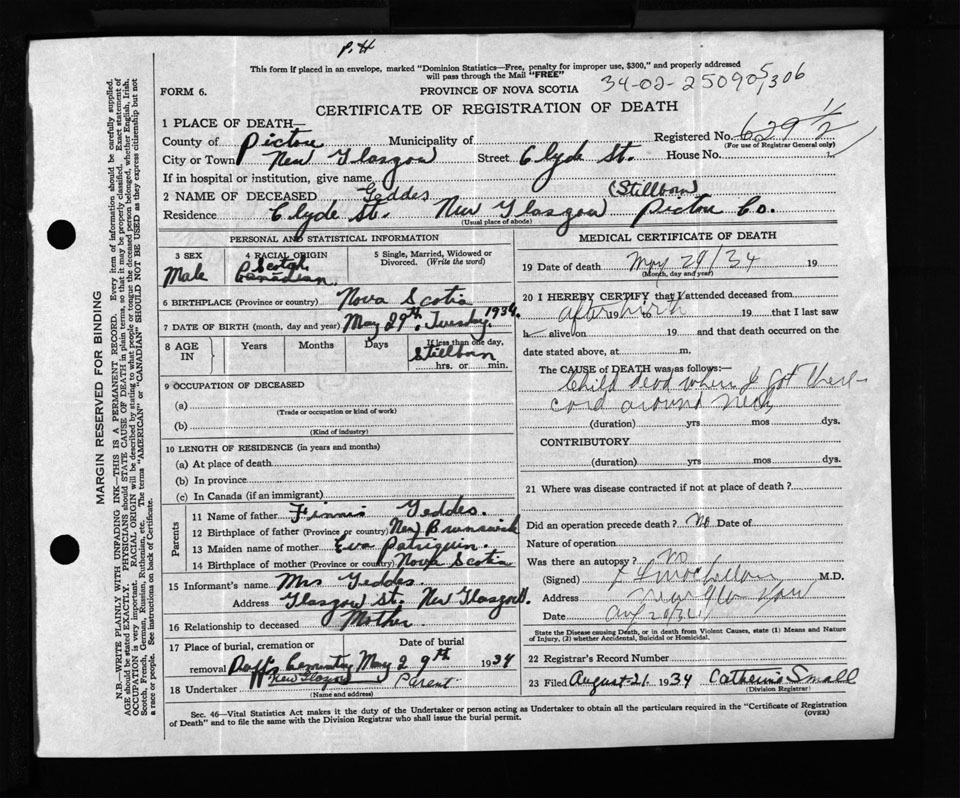 P.H
This form if placed in an envelope, marked "Dominion Statistics—Free, penalty for improper use, $300," and properly addressed
will pass through the Mail "FREE"
34-02-25090 5/306
FORM 6. PROVINCE OF NOVA SCOTIA
CERTIFICATE OF REGISTRATION OF DEATH
1 PLACE OF DEATH—
County of Pictou Municipality of Registered No. 629 1/2
(For use of Registrar General only)
City or Town New Glasgow Street Clyde St. House No.
If in hospital or institution, give name
2 NAME OF DECEASED Geddes (Stillborn)
Residence Clyde St. New Glasgow Pictou Co.
(Usual place of abode)
PERSONAL AND STATISTICAL INFORMATION
3 SEX 4 RACIAL ORIGIN 5 Single, Married, Widowed or
Divorced. (Write the word)
Male Scotch Canadian
6 BIRTHPLACE (Province or country) Nova Scotia
7 DATE OF BIRTH (month, day and year) May 29th, Tuesday, 1934.
8 AGE IN Years Months Days If less than one day,
Stillborn
hrs. or min.
9 OCCUPATION OF DECEASED
(a)
(Trade or occupation or kind of work)
(b)
(Kind of industry)
10 LENGTH OF RESIDENCE (in years and months)
(a) At place of death
(b) In province
(c) In Canada (if an immigrant)
Parents
11 Name of father Geddes.
12 Birthplace of father (Province or country) New Brunswick
13 Maiden name of mother Eva Patriquin.
14 Birthplace of mother (Province or country) Nova Scotia
15 Informant's name Mrs Geddes.
Address Glasgow St. New Glasgow.
16 Relationship to deceased Mother.
17 Place of burial, cremation or Date of burial
removal Duff's Cemetry May 29th 1934
New Glasgow
18 Undertaker Parent
(Name and address)
MEDICAL CERTIFICATE OF DEATH
19 Date of death May 29/34 19
(Month, day and year)
20 I HEREBY CERTIFY that I attended deceased from
after birth 19 to 19 that I last saw
h alive on 19 and that death occurred on the
date stated above, at m.
The CAUSE of DEATH was as follows:—
Child dead when I got there—
cord around neck
(duration) yrs mos dys.
CONTRIBUTORY
(duration) yrs mos dys.
21 Where was disease contracted if not at place of death?
Did an operation precede death? No Date of
Nature of operation
Was there an autopsy? No
(Signed) M.D.
Address New Glasgow
Date Aug 20/34
State the Disease causing Death, or in death from Violent Causes, state (1) Means and Nature
of Injury, (2) whether Accidental, Suicidal or Homicidal.
22 Registrar's Record Number
23 Filed August 21 1934 Catherine Small
(Division Registrar)
Sec. 46—Vital Statistics Act makes it the duty of the Undertaker or person acting as Undertaker to obtain all the particulars required in the "Certificate of Registration
of Death" and to file the same with the Division Registrar who shall issue the burial permit. (OVER)
MARGIN RESERVED FOR BINDING
N.B.—WRITE PLAINLY WITH UNFADING INK—THIS IS A PERMANENT RECORD. Every item of information should be carefully supplied.
AGE should be stated EXACTLY. PHYSICIANS should STATE CAUSE OF DEATH in plain terms, so that it may be properly classified. Exact statement of
OCCUPATION is very important. RACIAL ORIGIN will be described by stating to what people or tongue the deceased person belonged, whether English, Irish,
Scotch, French, German, Russian, Ruthenian, etc. The terms "AMERICAN" or "CANADIAN" SHOULD NOT BE USED as they express citizenship but not
a race or people. See instructions on back of Certificate.